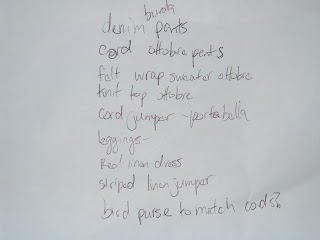 burda
denim pants
cord ottobre pants
felt wrap sweater ottobre
knit top ottobre
cord jumper - portabella
leggings -
Red linen dress
striped linen jumper
bird purse to match cords?